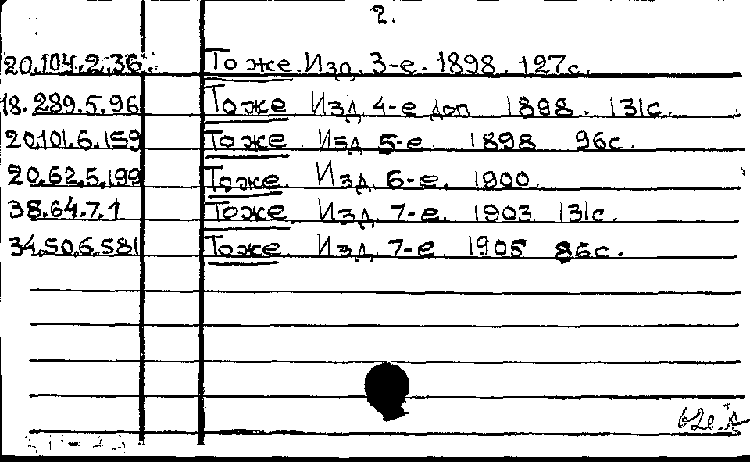 2.
20.104.2.36. То же. Изд. 3-е. 1898. 127с.
18.289.5.96 То же Изд. 4-е доп 1898. 131с.
20.101.6.159 То же Изд 5-е 1898 96с.
20.62.5.199 То же. Изд. 6-е. 1900.
38.64.7.1 То же. Изд. 7-е. 1903 131с.
34.50.6.581 То же Изд. 7-е 1905 86с.